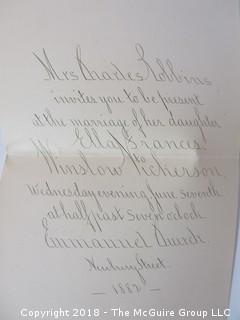 Mrs Charles Robbins
invites you to be present
at the marriage of her daughter
Ella Frances
to
Winslow Nickerson
Wednesday evening June seventh
at half past seven o'clock
Emmanuel Church
Newbury Street
— 1882 —
Copyright © 2018 - The McGuire Group LLC